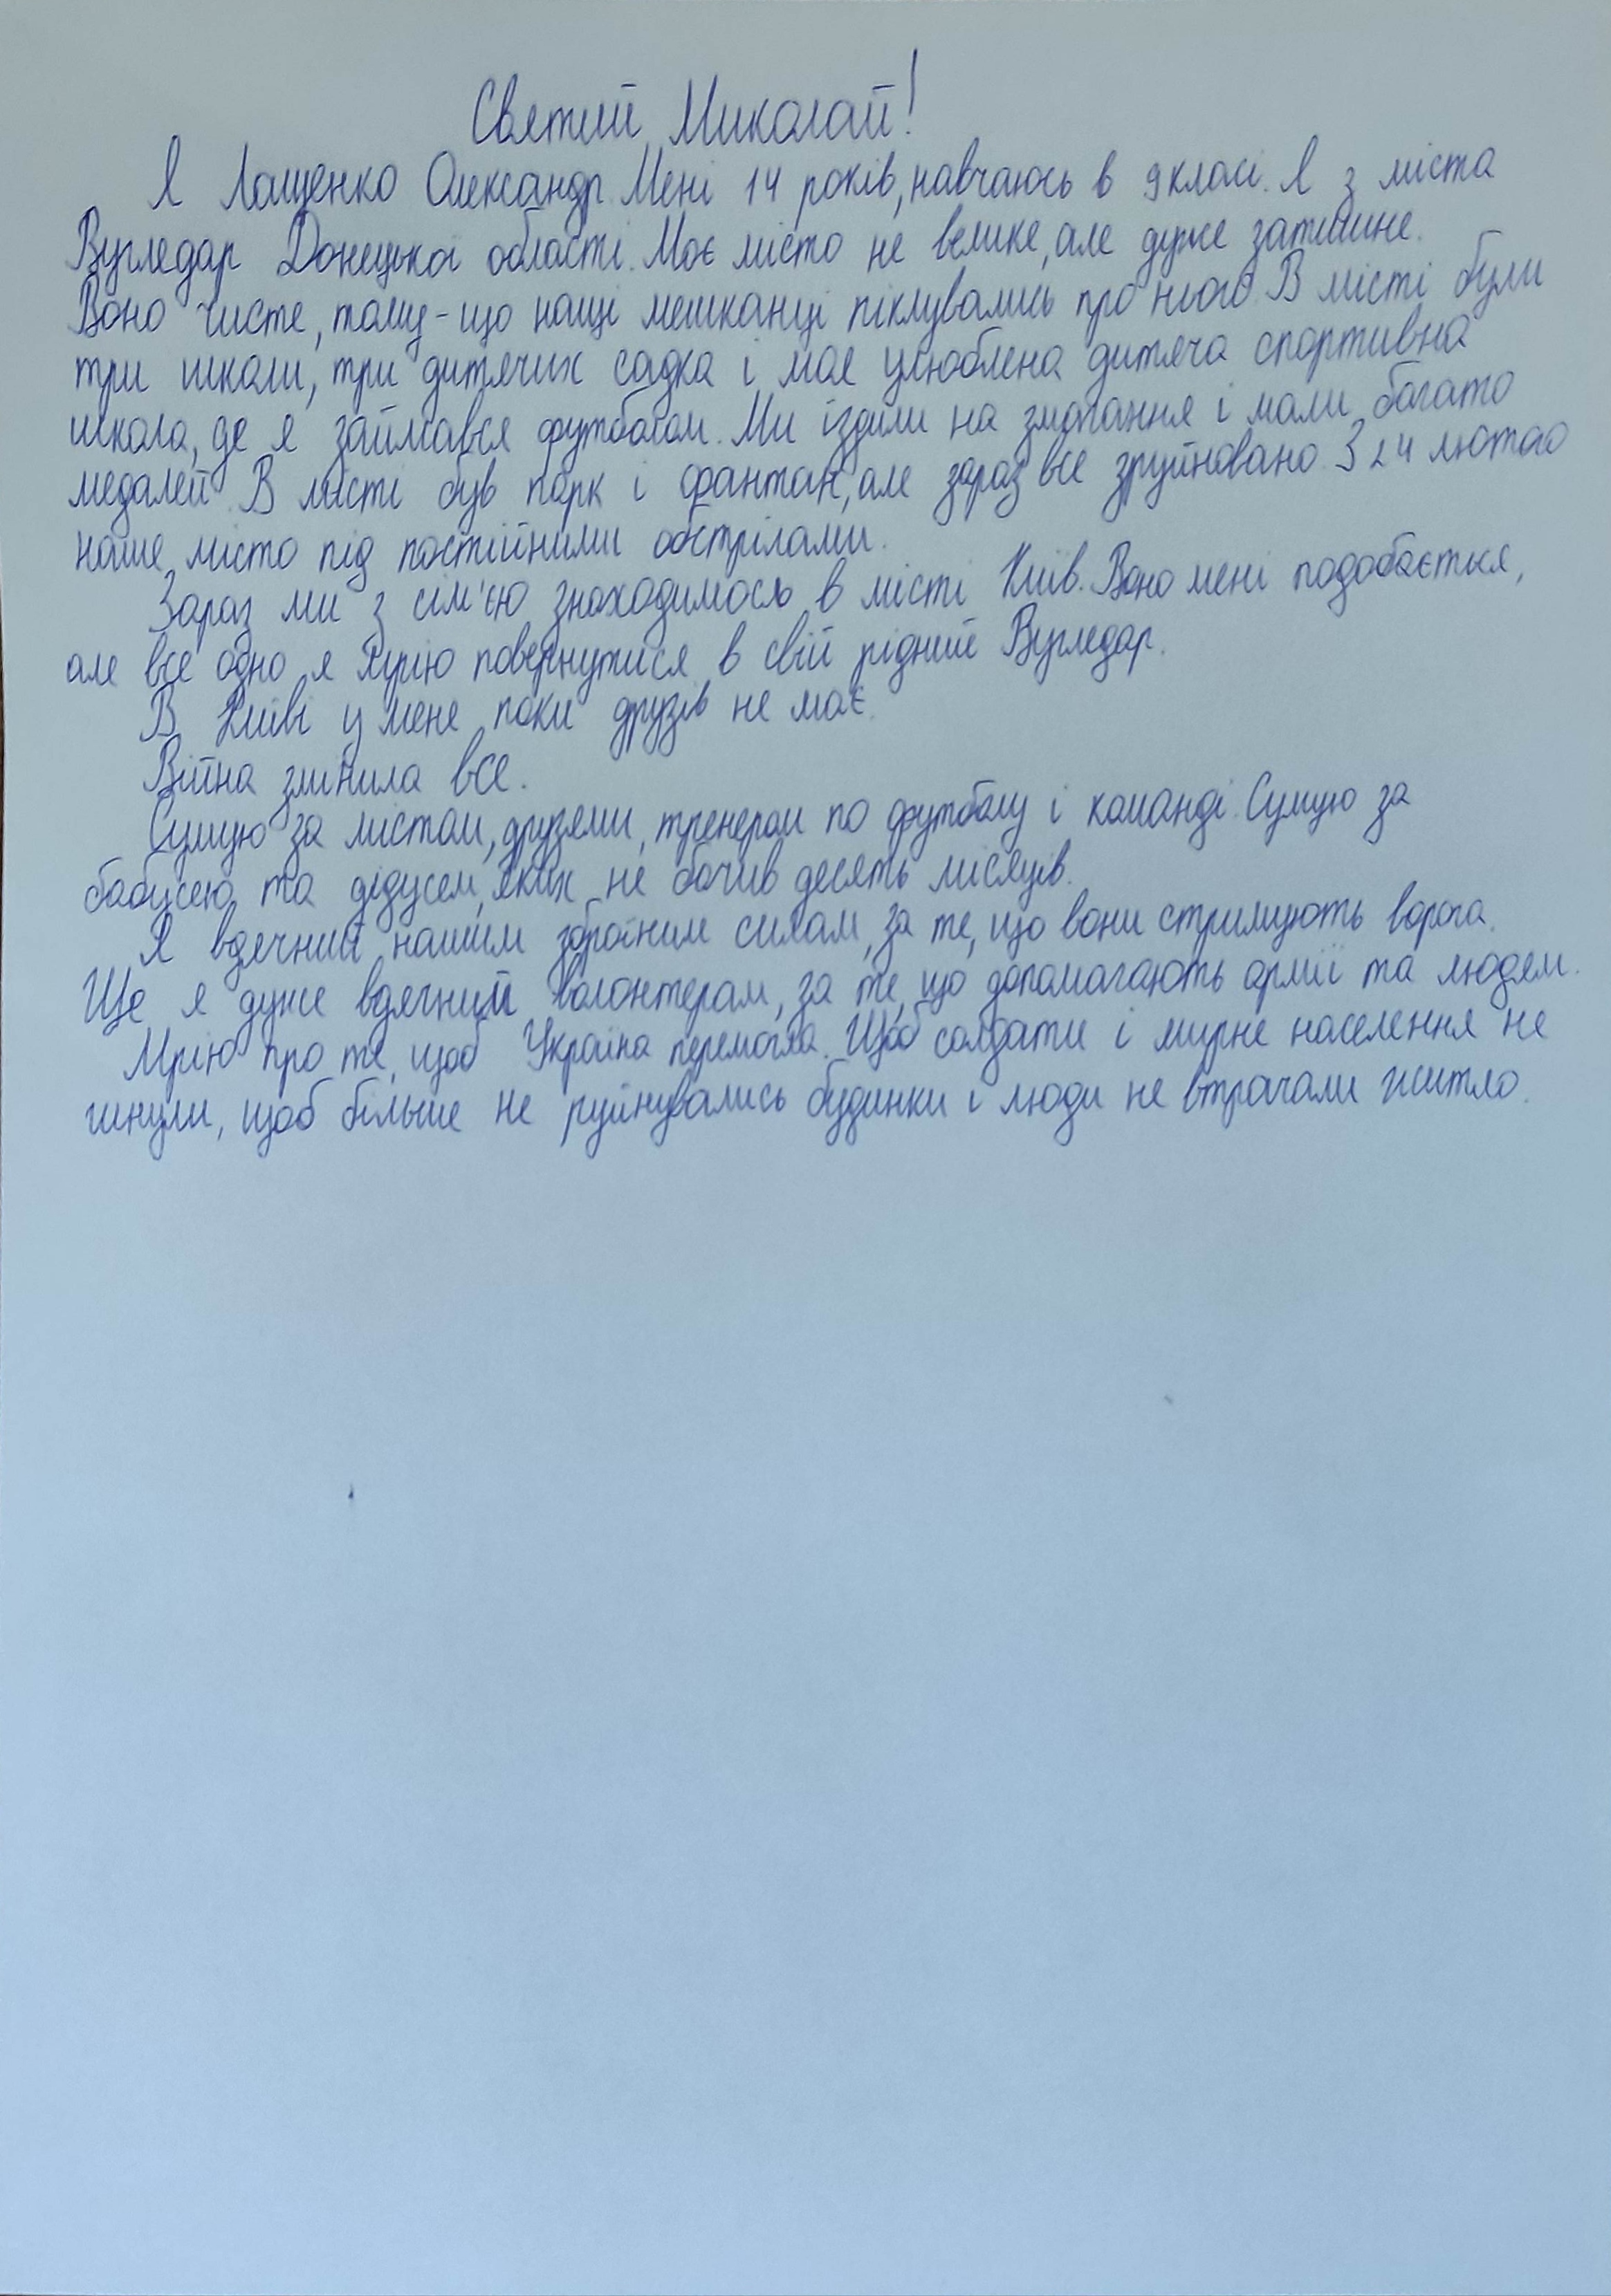 Святий Миколай!
Я Лащенко Олександр. Мені 14 років, навчаюсь в 9 класі. Я з міста
Вугледар Донецької області. Моє місто не велике, але дуже затишне.
Воно чисте, тому-що наші мешканці піклувались про нього. В місті були
три школи, три дитячих садка і моя улюблена дитяча спортивна
школа, де я займався футболом. Ми їздили на змагання і мали багато
медалей. В місті був парк і фантан, але зараз все зруйновано. З 24 лютого
наше місто під постійними обстрілами.
Зараз ми з сім'єю знаходимось в місті Київ. Воно мені подобається,
але все одно я мрію повернутися в свій рідний Вугледар.
В Київі у мене поки друзів не має.
Війна змінила все.
Сумую за містом, друзями, тренером по футболу і команді. Сумую за
бабусею та дідусем, яких не бачив десять місяців.
Я вдячний нашим збройним силам, за те, що вони стримують ворога.
Ще я дуже вдячний волонтерам, за те, що допомагають армії та людям.
Мрію про те, щоб Україна перемогла. Щоб солдати і мирне населення не
гинули, щоб більше не руйнувались будинки і люди не втрачали житло.